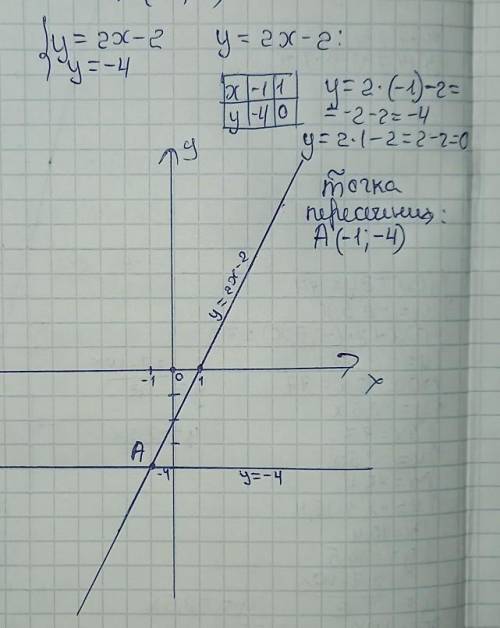 {y = 2x - 2
y = -4
y = 2x - 2:
x -1 1
y -4 0
y = 2 · (-1) - 2 =
= -2 - 2 = -4
y = 2 · 1 - 2 = 2 - 2 = 0
Точка
пересечения:
A (-1; -4)
y
y = 2x - 2
-1 0 1
x
A
-4
y = -4